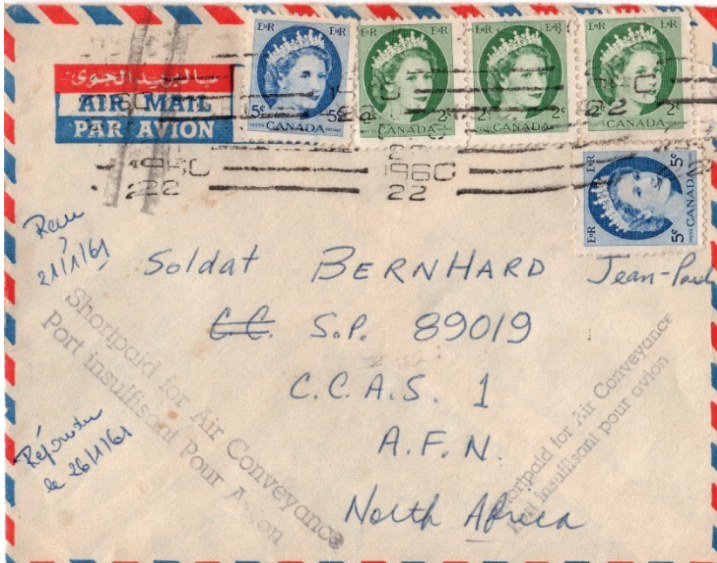 بالبريد الجوى
AIR MAIL
PAR AVION
E R E R
5c 5c
CANADA
E R E R
2c 2c
CANADA
E R E R
2c 2c
CANADA
E R E R
2c 2c
CANADA
E R E R
5c 5c
CANADA
1960
22
1960
22
Reçu
21/1/61
Soldat BERNHARD Jean-Paul
C.C. S.P. 89019
C.C.A.S. 1
A.F.N.
North Africa
Shortpaid for Air Conveyance
Port insuffisant Pour Avion
Shortpaid for Air Conveyance
Port insuffisant pour avion
Répondu
le 26/1/61